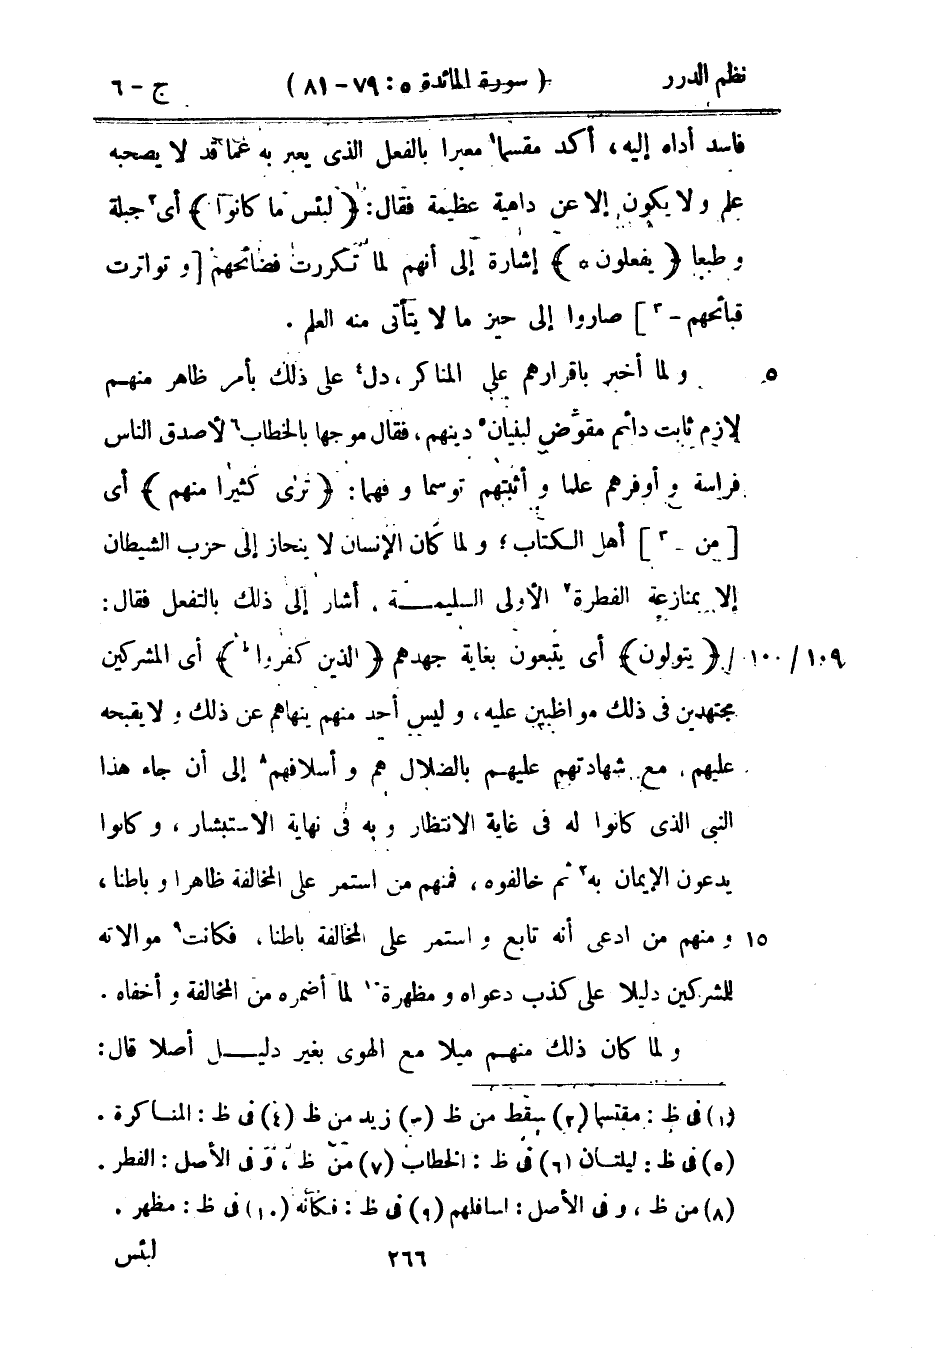 نظم الدرر ( سورة المائدة ٥ : ٧٩ - ٨١ ) ج - ٦
فاسد أداه إليه، أكد مقسما١ معبرا بالفعل الذى يعبر به عما قد لا يصحبه
علم و لا يكون إلا عن داهية عظيمة فقال: ﴿ لبئس ما كانوا ﴾ أى٢ جبلة
و طبعا ﴿ يفعلون ٥ ﴾ إشارة إلى أنهم لما تكررت فضائحهم [ و تواترت
قبائحهم - ٣ ] صاروا إلى حيز ما لا يتأتى منه العلم .
٥ و لما أخبر باقرارهم على المناكر، دل٤ على ذلك بأمر ظاهر منهم
لازم ثابت دائم مقوض لبنيان٥ دينهم، فقال موجها بالخطاب٦ لأصدق الناس
فراسة و أوفرهم علما و أثبتهم توسما و فهما: ﴿ ترى كثيرا منهم ﴾ أى
[ من - ٣ ] أهل الكتاب؛ و لما كان الإنسان لا ينحاز إلى حزب الشيطان
إلا بمنازعة الفطرة٧ الأولى السليمة، أشار إلى ذلك بالتفعل فقال:
١٠٩ / ١٠٠ / ﴿ يتولون ﴾ أى يتبعون بغاية جهدهم ﴿ الذين كفروا ﴾ أى المشركين
مجتهدين فى ذلك مواظبين عليه، و ليس أحد منهم ينهاهم عن ذلك و لا يقبحه
عليهم، مع شهادتهم عليهم بالضلال هم و أسلافهم٨ إلى أن جاء هذا
النبى الذى كانوا له فى غاية الانتظار و به فى نهاية الاستبشار، و كانوا
يدعون الإيمان به٣ ثم خالفوه، فمنهم من استمر على المخالفة ظاهرا و باطنا،
١٥ و منهم من ادعى أنه تابع و استمر على المخالفة باطنا، فكانت٩ موالاته
للشركين دليلا على كذب دعواه و مظهرة١٠ لما أضمره من المخالفة و أخفاه .
و لما كان ذلك منهم ميلا مع الهوى بغير دليل أصلا قال:
(١) فى ظ : مقتسما (٢) سقط من ظ (٣) زيد من ظ (٤) فى ظ : المناكرة .
(٥) فى ظ : ليلتان (٦) فى ظ : الخطاب (٧) من ظ ، و فى الأصل : الفطر .
(٨) من ظ ، و فى الأصل : اسافلهم (٩) فى ظ : فكأنه (١٠) فى ظ : مظهر .
٢٦٦ لبئس